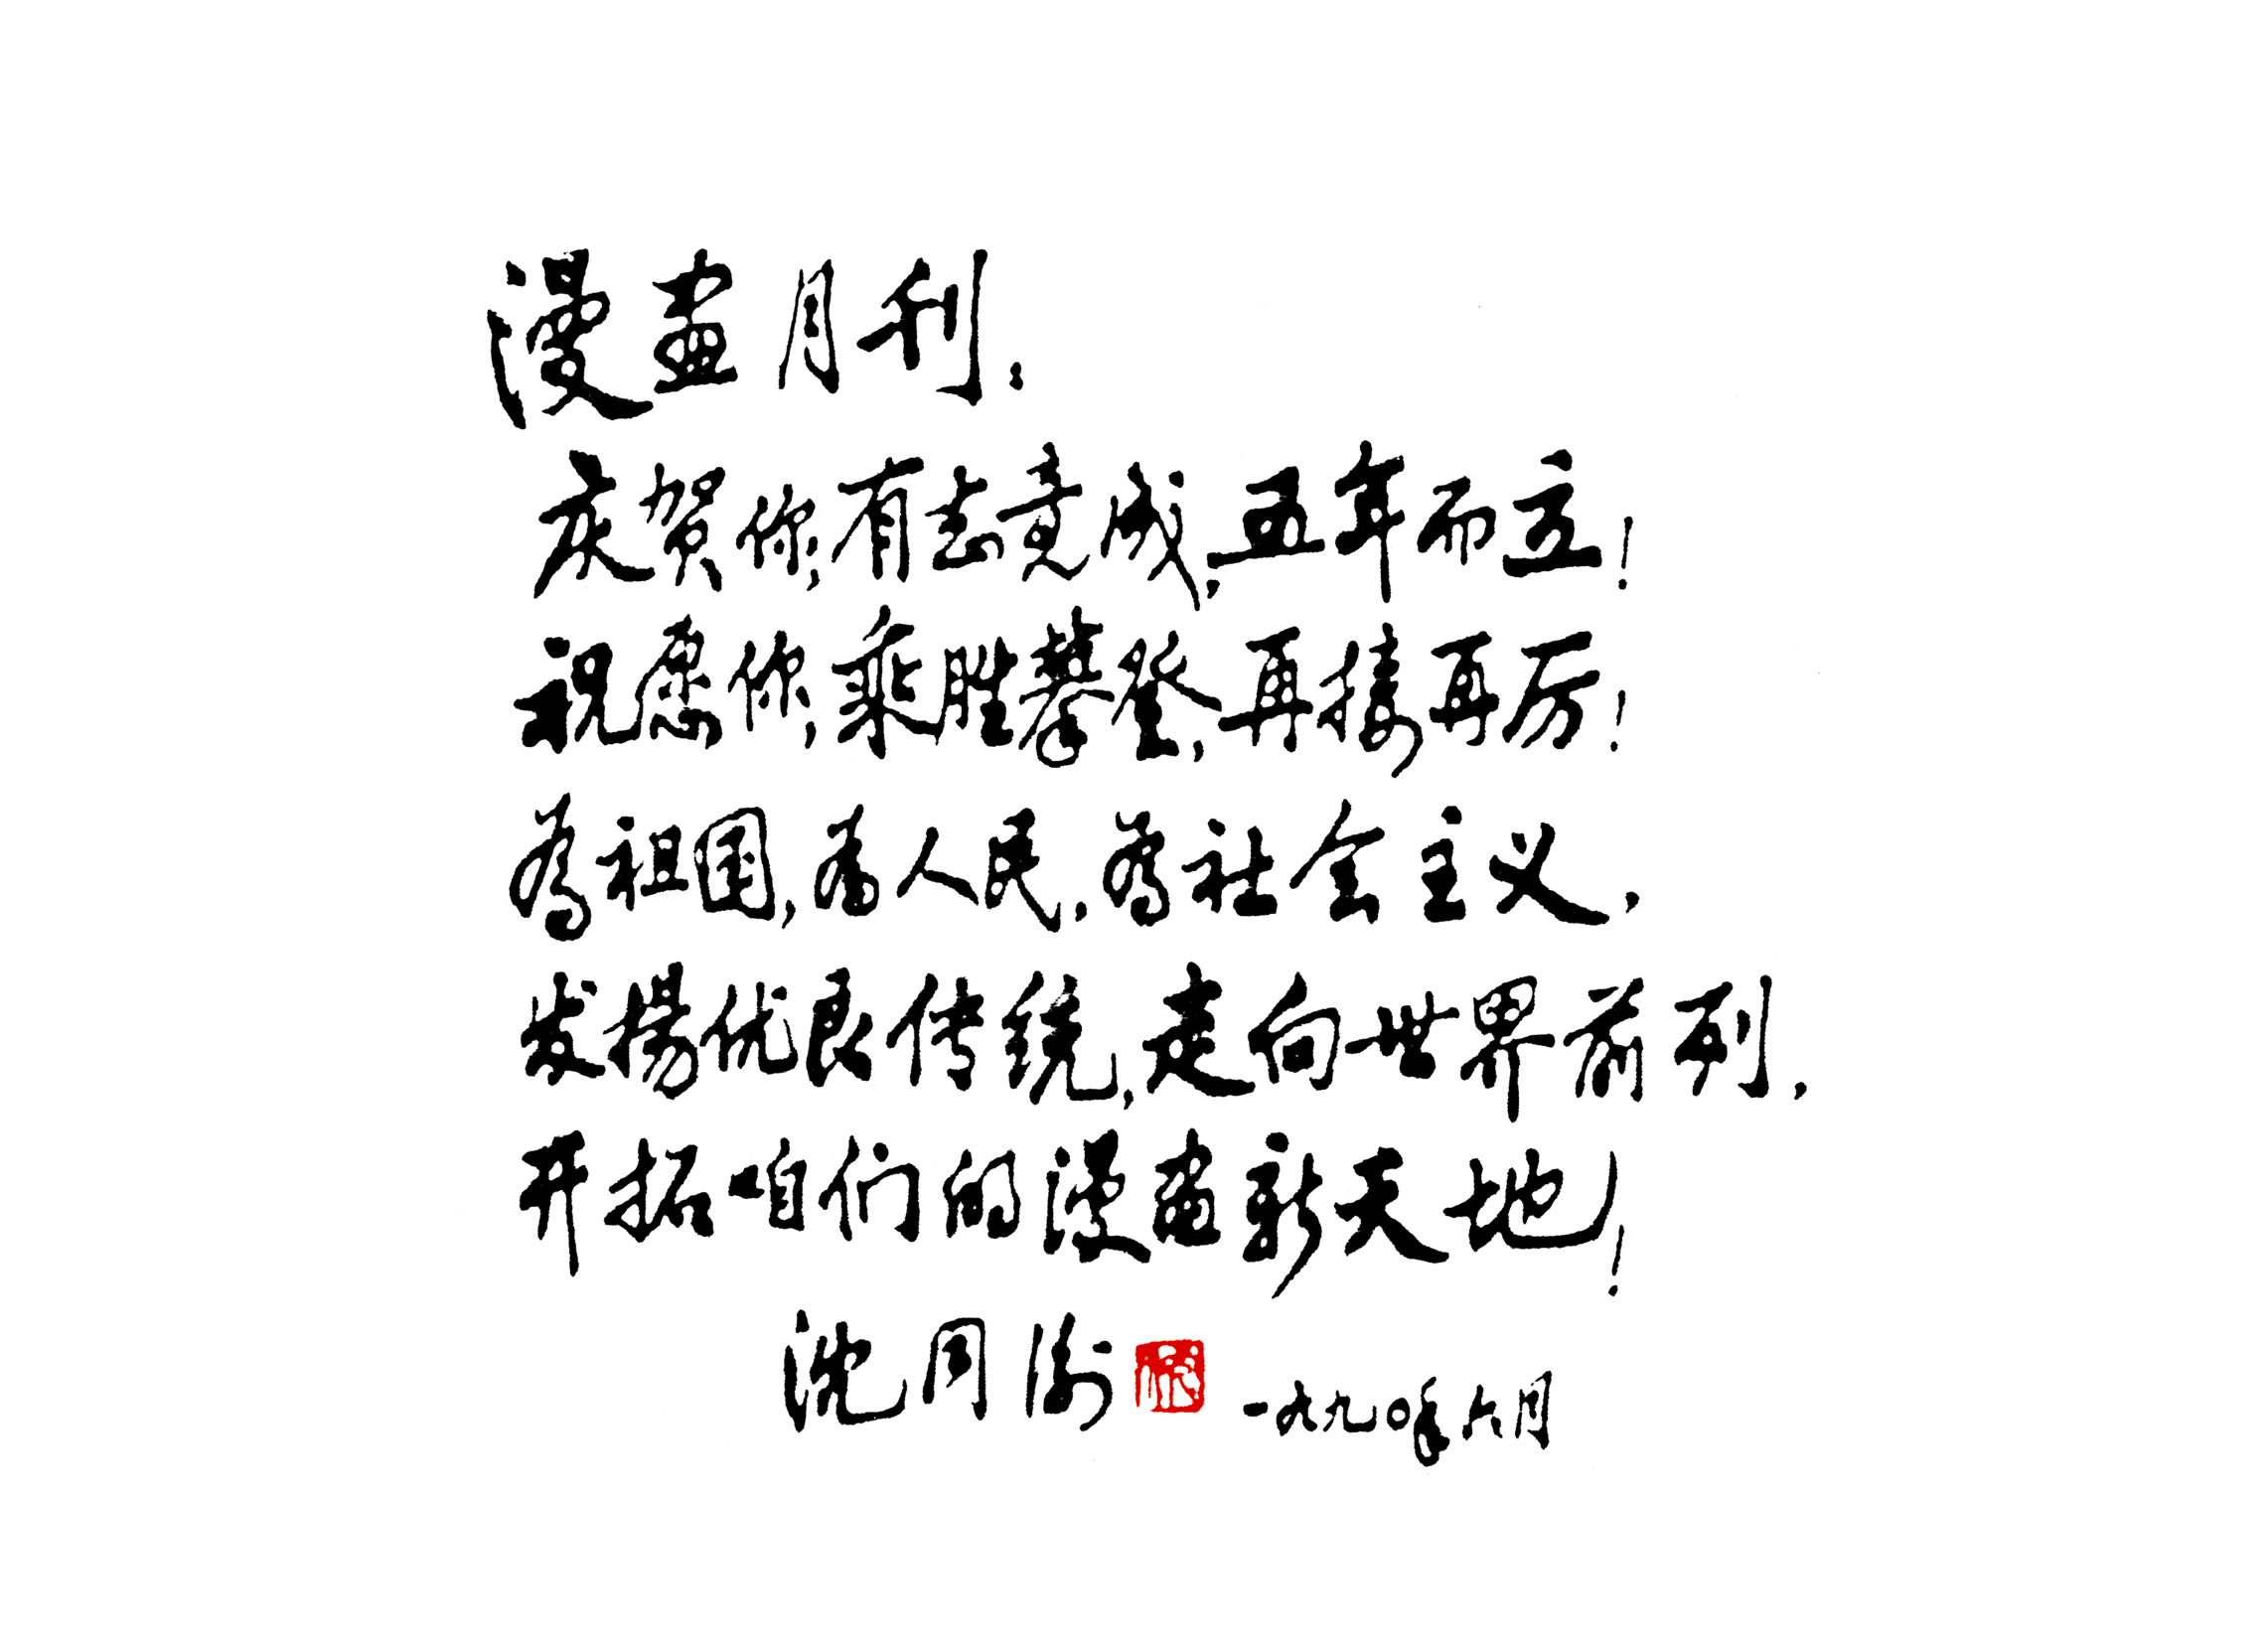 漫畫月刊：
庆贺你，有志竟成，五年而立！
祝愿你，乘胜攀登，再接再厉！
为祖国，为人民，为社会主义，
发揚优良传统，走向世界前列，
开拓咱们的漫画新天地！
沈同衡 一九九〇年六月